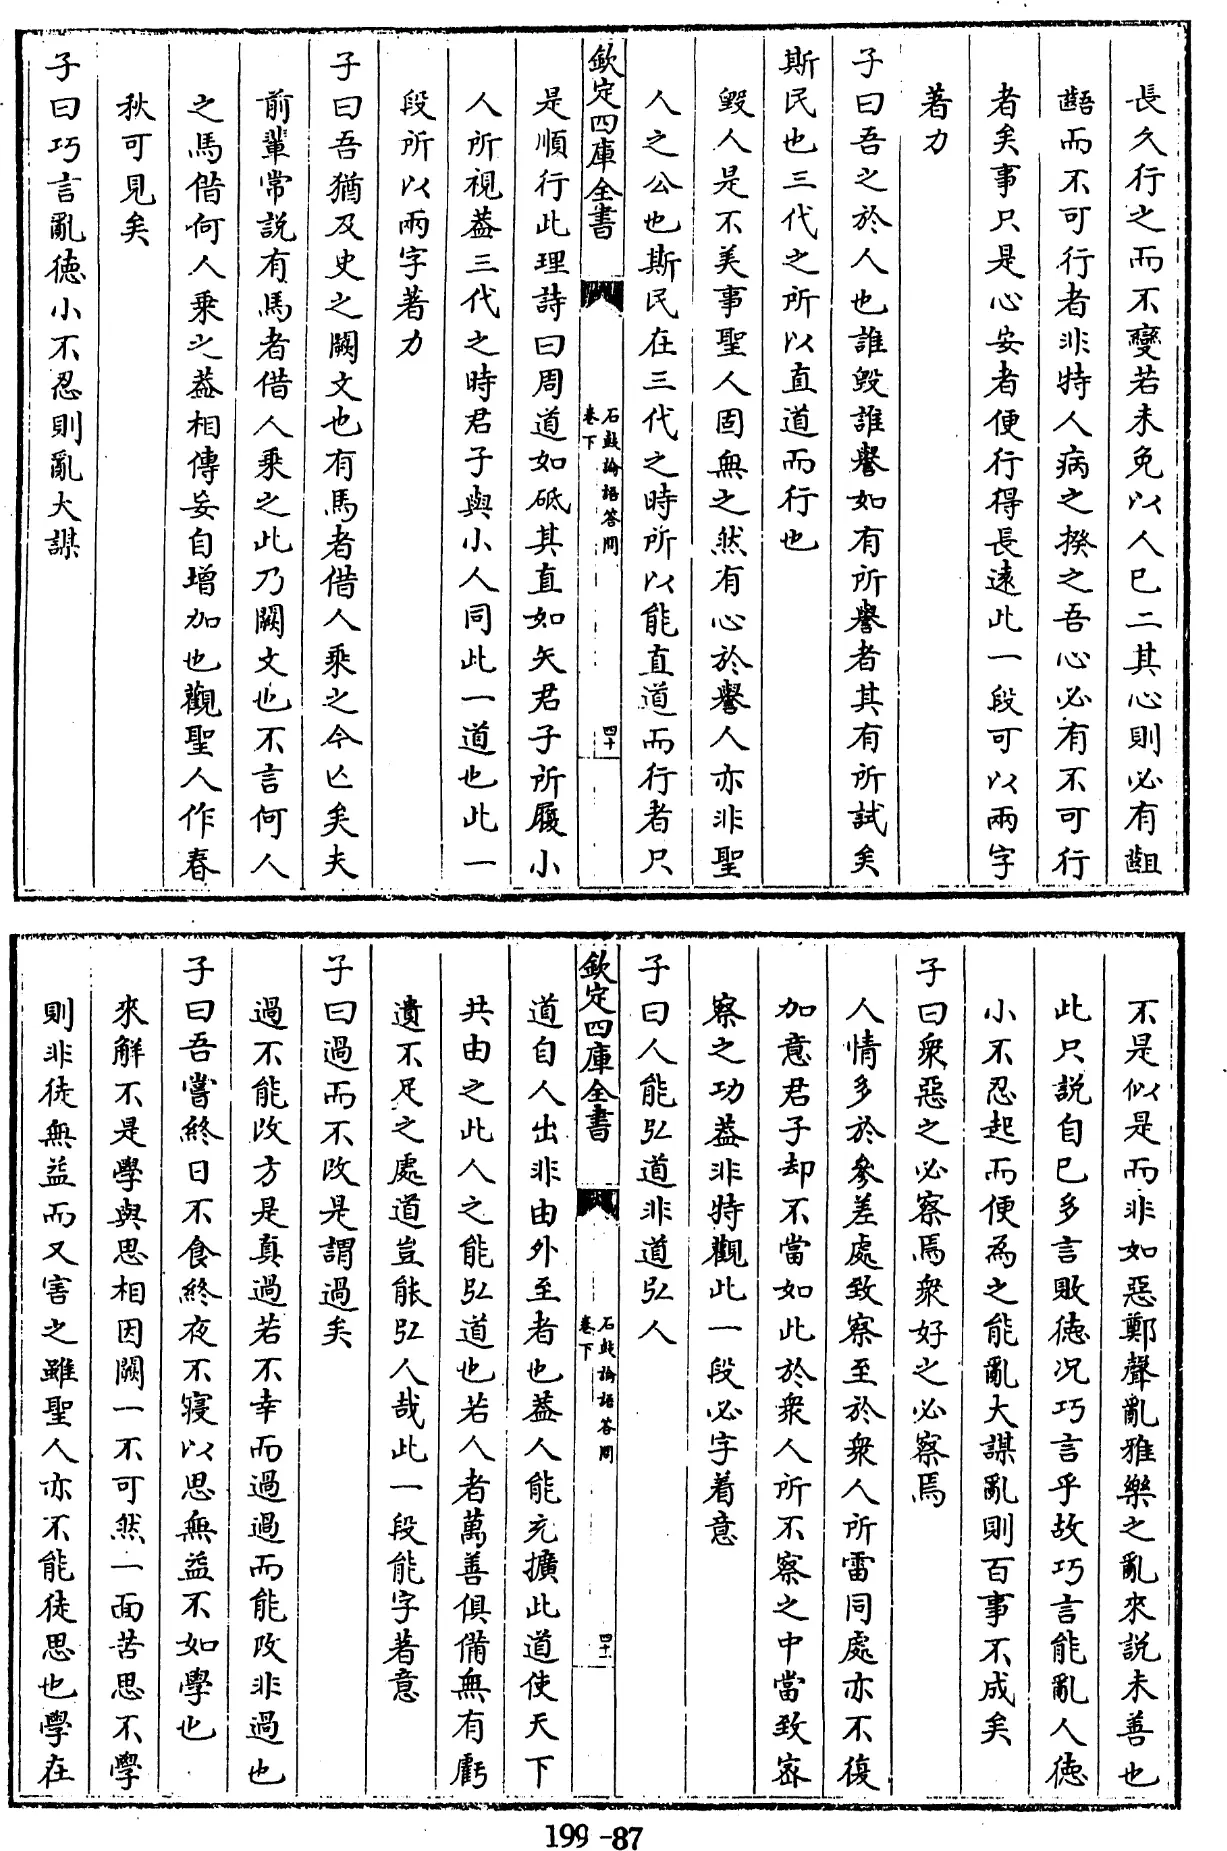 長久行之而不變若未免以人已二其心則必有齟
齬而不可行者非特人病之揆之吾心必有不可行
者矣事只是心安者便行得長遠此一段可以兩字
著力
子曰吾之於人也誰毀誰譽如有所譽者其有所試矣
斯民也三代之所以直道而行也
毀人是不美事聖人固無之然有心於譽人亦非聖
人之公也斯民在三代之時所以能直道而行者只
欽定四庫全書
石鼓論語答問
卷下
四十
是順行此理詩曰周道如砥其直如矢君子所履小
人所視葢三代之時君子與小人同此一道也此一
段所以兩字著力
子曰吾猶及史之闕文也有馬者借人乘之今亡矣夫
前輩常説有馬者借人乘之此乃闕文也不言何人
之馬借何人乘之葢相傳妄自增加也觀聖人作春
秋可見矣
子曰巧言亂徳小不忍則亂大謀
不是似是而非如惡鄭聲亂雅樂之亂來説未善也
此只説自已多言敗徳况巧言乎故巧言能亂人徳
小不忍起而便為之能亂大謀亂則百事不成矣
子曰衆惡之必察焉衆好之必察焉
人情多於參差處致察至於衆人所雷同處亦不復
加意君子却不當如此於衆人所不察之中當致宻
察之功葢非特觀此一段必字着意
子曰人能弘道非道弘人
欽定四庫全書
石鼓論語答問
卷下
四十一
道自人出非由外至者也葢人能充擴此道使天下
共由之此人之能弘道也若人者萬善俱備無有虧
遺不足之處道豈能弘人哉此一段能字著意
子曰過而不改是謂過矣
過不能改方是真過若不幸而過過而能改非過也
子曰吾嘗終日不食終夜不寝以思無益不如學也
來解不是學與思相因闕一不可然一面苦思不學
則非徒無益而又害之雖聖人亦不能徒思也學在
199-87